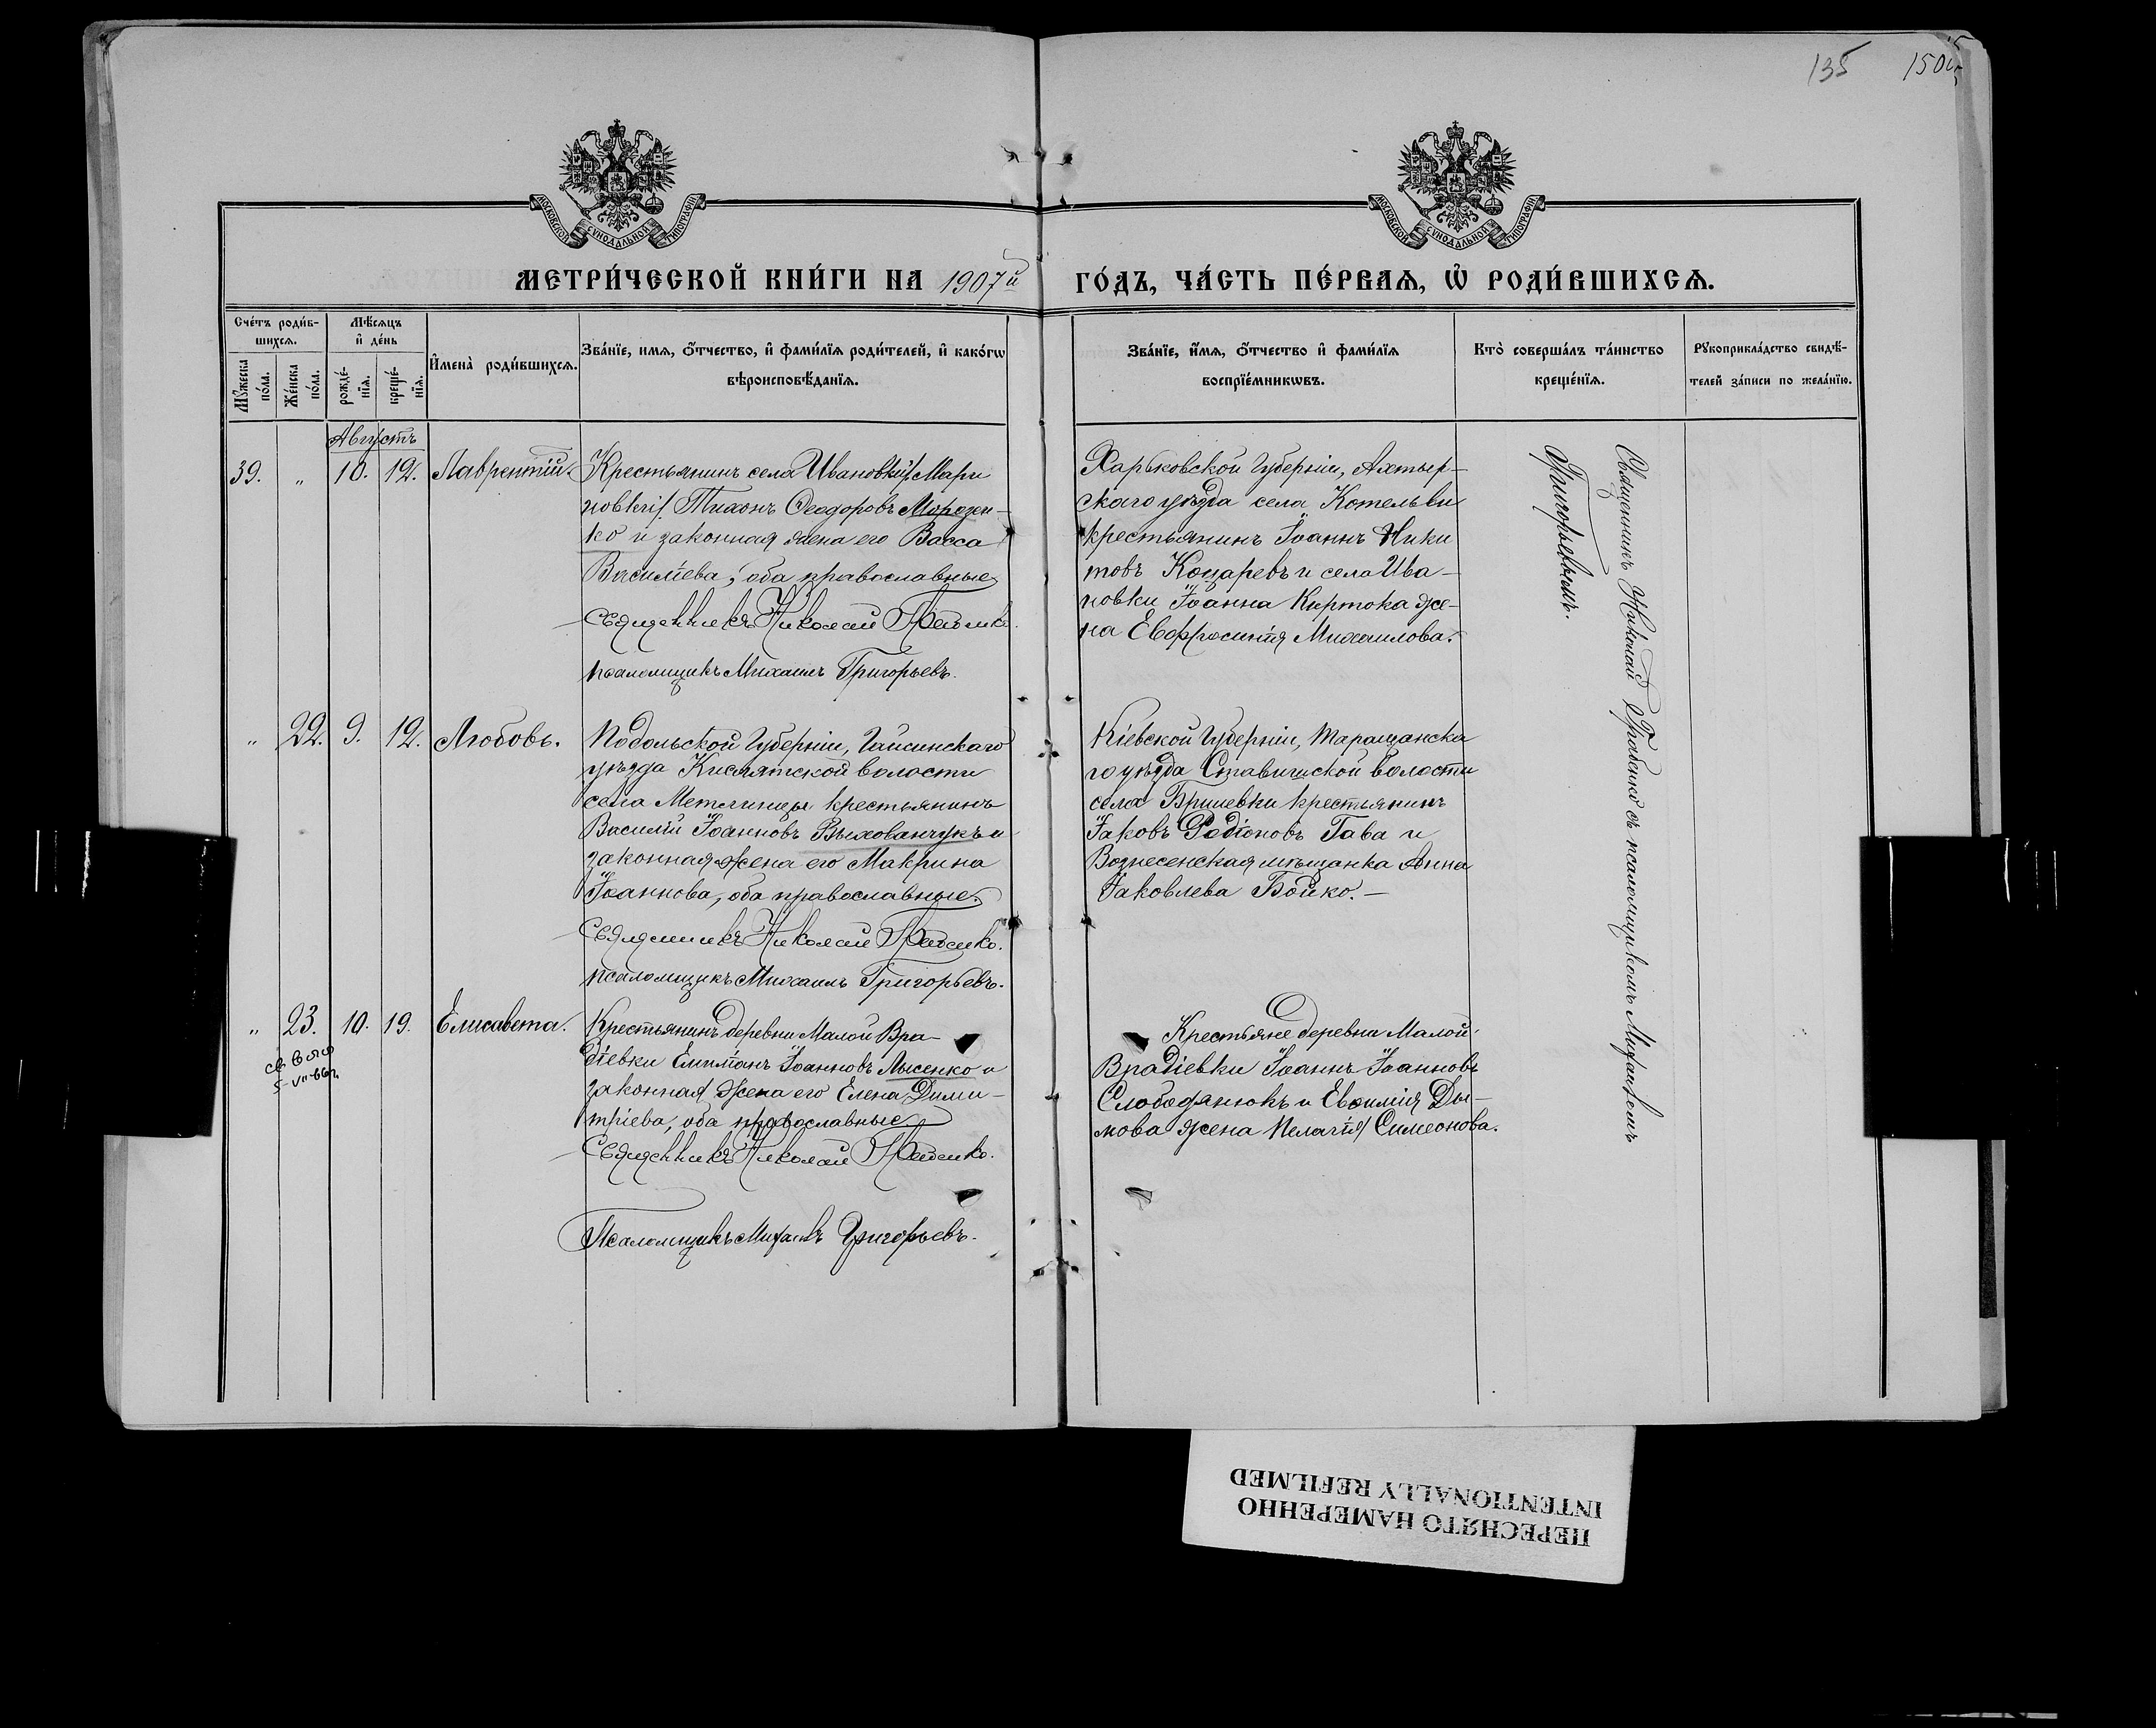 135 150
МОСКОВСКОЙ СѴНОДАЛЬНОЙ ТИПОГРАФІИ
МОСКОВСКОЙ СѴНОДАЛЬНОЙ ТИПОГРАФІИ
МЕТРИ́ЧЕСКОЙ КНИ́ГИ НА 1907й ГО́ДЪ, ЧА́СТЬ ПЕ́РВАѦ, Ѡ҆ РОДИ́ВШИХСѦ.
Сче́тъ роди́в-
шихсѧ.
Мꙋ́жеска по́ла.
Же́нска по́ла.
Мѣ́сѧцъ
и҆ де́нь
рожде́-
нїѧ.
креще́-
нїѧ.
И҆мена̀ роди́вшихсѧ.
Зва́нїе, имѧ, ѻ҆́тчество, и҆ фами́лїѧ роди́телей, и҆ како́гѡ
вѣроисповѣ́данїѧ.
Зва́нїе, и҆́мѧ, ѻ҆́тчество и҆ фами́лїѧ
воспрїе́мникѡвъ.
Кто̀ соверша́лъ та́инство
креще́нїѧ.
Рꙋкоприкла́дство свидѣ́-
телей за́писи по жела́нїю.
Августъ
39. " 10. 12. Лаврентій.
Крестьянинъ села Ивановки /Мари
новки/ Тихонъ Ѳеодоровъ Морозен-
ко и законная жена его Васса
Василіева, оба православные
Священникъ Николай
псаломщикъ Михаилъ Григорьевъ.
Харьковской Губерніи, Ахтыр-
скаго уѣзда села Котельви
крестьянинъ Іоаннъ Ники
товъ Коцаревъ и села Ива-
новки Іоанна Киртока же-
на Евфросинія Михаилова.
Священникъ Николай Грабенко съ псаломщикомъ Михаиломъ
Григорьевымъ.
" 22. 9. 12. Любовь.
Подольской Губерніи, Гайсинскаго
уѣзда Кислятской волости
села Метлинцы крестьянинъ
Василій Іоанновъ Выхованчукъ и
законная жена его Макрина
Іоаннова, оба православные.
Священникъ Николай
псаломщикъ Михаилъ Григорьевъ.
Кіевской Губерніи, Таращанска
го уѣзда Ставищской волости
села Брилевки крестьянинъ
Іаковъ Родіоновъ Гава и
Вознесенская мѣщанка Анна
Іаковлева Бойко.-
" 23. 10. 19. Елисавета.
Крестьянинъ деревни Малой Вра-
діевки Емиліанъ Іоанновъ Лысенко и
законная жена его Елена Дими-
тріева, оба православные
Священникъ Николай
Псаломщикъ Михаилъ Григорьевъ.
Крестьяне деревни Малой
Врадіевки Іоаннъ Іоанновъ
Слободянюкъ и Евѳимія Ды-
мова жена Пелагія Симеонова.
ПЕРЕСНЯТО НАМЕРЕННО
INTENTIONALLY REFILMED